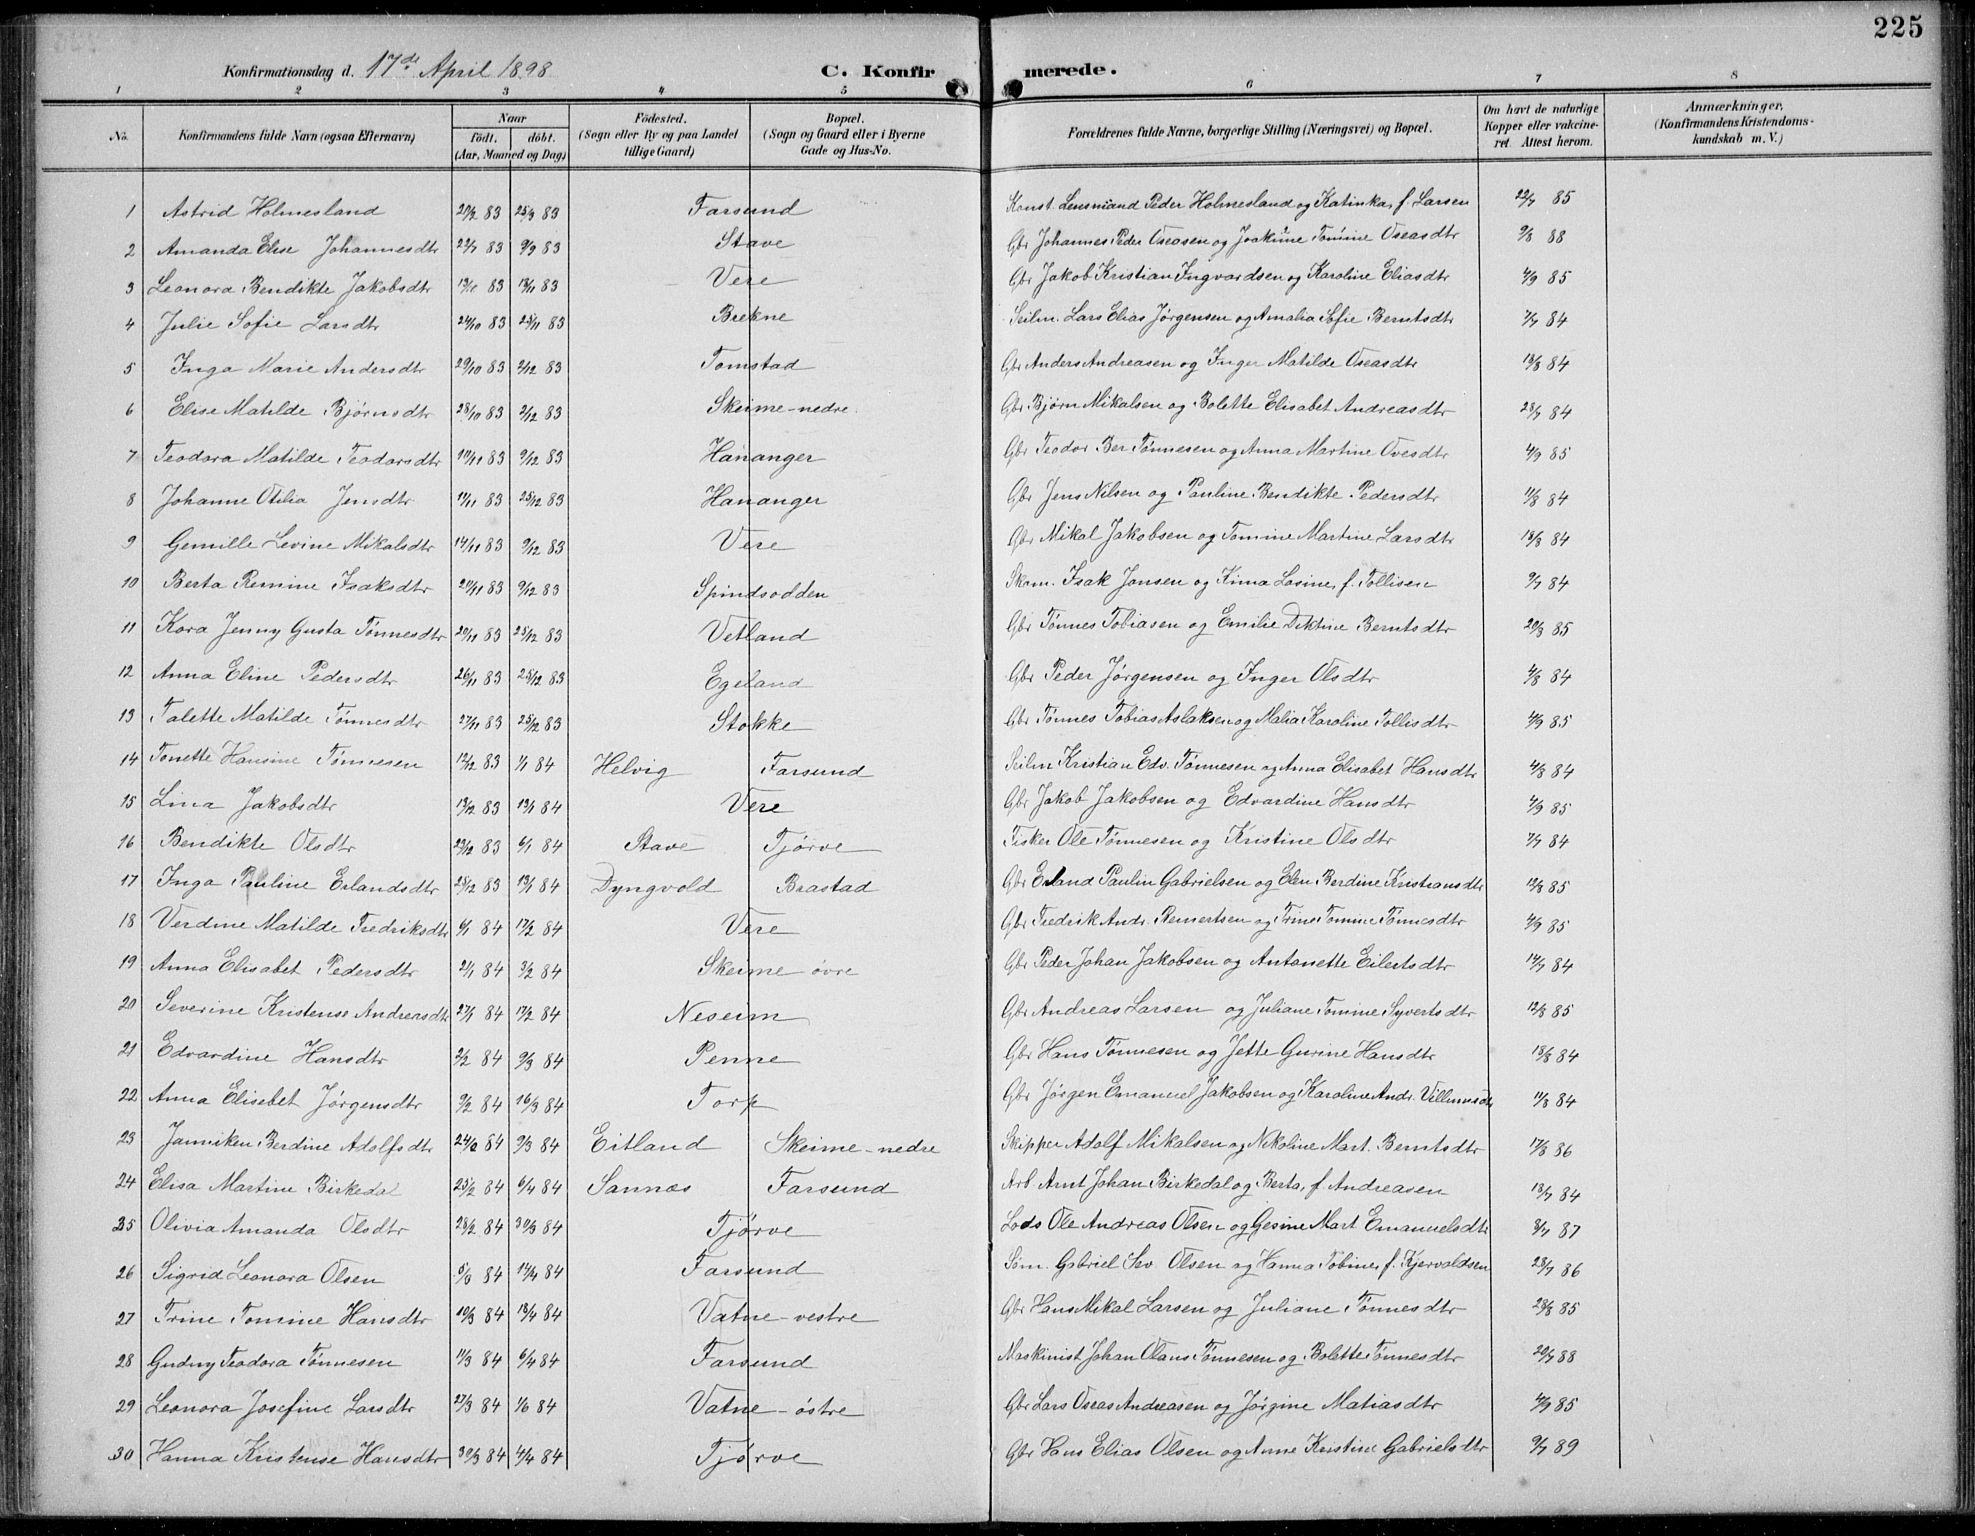 225
Konfirmationsdag d. 17de April 1898 C. Konfirmerede.
1 2 3 4 5 6 7 8
No. Konfirmandens fulde Navn (ogsaa Efternavn) Naar födt. döbt. (Aar, Maaned og Dag) Födested. (Sogn eller By og paa Landet tillige Gaard) Bopæl. (Sogn og Gaard eller i Byerne Gade og Hus-No. Forældrenes fulde Navne, borgerlige Stilling (Næringsvei) og Bopæl. Om havt de naturlige Kopper eller vakcineret. Attest herom. Anmærkninger, (Konfirmandens Kristendomskundskab m. V.)
1 Astrid Holmesland 83 25/3 83 Farsund Konst. Lensmand Peder Holmesland og Katinka, f. Larsen 22/7 85
2 Amanda Elise Johannesdtr 83 9/9 83 Stave Gbr Johannes Peder Oseasen og Joakime Tomine Oseasdtr 9/8 88
3 Leonora Bendikte Jakobsdtr 83 83 Vere Gbr Jakob Kristian Ingvardsen og Karoline Eliasdtr 4/9 85
4 Julie Sofie Larsdtr 24/10 83 25/11 83 Brekne Seilm. Lars Elias Jørgensen og Amalia Sofie Berntsdtr 7/7 84
5 Inga Marie Andersdtr 29/10 83 2/12 83 Tomstad Gbr Anders Andreasen og Inger Matilde Oseasdtr 13/8 84
6 Elise Matilde Bjørnsdtr 28/10 83 2/12 83 Skeime-nedre Gbr Bjørn Mikalsen og Bolette Elisabet Andreasdtr 28/7 84
7 Teodora Matilde Teodorsdtr 10/11 83 9/12 83 Hananger Gbr Teodor Ber Tønnesen og Anna Martine Ovesdtr 4/9 85
8 Johanne Otilia Jensdtr 11/11 83 25/12 83 Hananger Gbr Jens Nilsen og Pauline Bendikte Pedersdtr 11/8 84
9 Gemille Levine Mikalsdtr 14/11 83 9/12 83 Vere Gbr Mikal Jakobsen og Tomine Martine Larsdtr 13/8 84
10 Berta Remine Isaksdtr 83 9/12 83 Spindsodden Skom. Isak Jansen og Kima Losine, f. Tollisen 9/7 84
11 Kora Jenny Gusta Tønnesdtr 20/11 83 25/12 83 Vetland Gbr Tønnes Tobiasen og Emilie Diktine Berntsdtr 20/8 85
12 Anna Eline Pedersdtr 26/11 83 25/12 83 Egeland Gbr Peder Jørgensen og Inger Olsdtr 4/8 84
13 Talette Matilde Tønnesdtr 27/11 83 25/12 83 Stokke Gbr Tønnes Tobias Aslaksen og Malia Karoline Tollisdtr 4/9 85
14 Tonette Hansine Tønnesen 12/12 83 1/1 84 Helvig Farsund Seilm Kristian Edv. Tønnesen og Anna Elisabet Hansdtr 4/8 84
15 Lina Jakobsdtr 13/12 83 13/1 84 Vere Gbr Jakob Jakobsen og Edvardine Hansdtr 4/9 85
16 Bendikte Olsdtr 83 6/1 84 Stave Tjørve Fisker Ole Tønnesen og Kristine Olsdtr 7/7 84
17 Inga Pauline Erlandsdtr 25/12 83 13/1 84 Dyngvold Brastad Gbr Erland Paulin Gabrielsen og Elen Berdine Kristiansdtr 12/8 85
18 Verdine Matilde Fredriksdtr 6/1 84 17/2 84 Vere Gbr Fredrik Andr. Remertsen og Trine Tomine Tønnesdtr 4/9 85
19 Anna Elisabet Pedersdtr 2/1 84 3/2 84 Skeime-övre Gbr Peder Johan Jakobsen og Antonette Eilertsdtr 14/7 84
20 Severine Kristense Andreasdtr 27/1 84 17/2 84 Neseim Gbr Andreas Larsen og Juliane Tomine Syvertsdtr 12/8 85
21 Edvardine Hansdtr 2/2 84 9/3 84 Penne Gbr Hans Tønnesen og Jette Gurine Hansdtr 18/8 84
22 Anna Elisebet Jørgensdtr 9/2 84 16/3 84 Torp Gbr Jørgen Emanuel Jakobsen og Karoline Andr. 11/8 84
23 Janniken Berdine Adolfsdtr 24/2 84 9/3 84 Eitland Skeime-nedre Skipper Adolf Mikalsen og Nikoline Mart. Berntsdtr 17/8 86
24 Elisa Martine Birkedal 25/2 84 6/4 84 Sannæs Farsund Arb. Arnt Johan Birkedal og Berta, f. Andreasen 13/7 84
25 Olivia Amanda Olsdtr 28/2 84 30/3 84 Tjørve Lods Ole Andreas Olsen og Gesine Mart Emanuelsdtr 3/7 87
26 Sigrid Leonora Olsen 5/3 84 14/4 84 Farsund Søm. Gabriel Sev. Olsen og Hanna Tobine, f. Kjervaldsen 28/7 86
27 Trine Tomine Hansdtr 10/3 84 13/4 84 Vatne-vestre Gbr Hans Mikal Larsen og Juliane Tønnesdtr 28/8 85
28 Gudny Teodora Tønnesen 11/3 84 6/4 84 Farsund Maskinist Johan Olaus Tønnesen og Bolette Tønnesdtr 20/7 88
29 Leonora Josefine Larsdtr 27/3 84 1/6 84 Vatne-östre Gbr Lars Oseas Andreasen og Jørgine Matiasdtr 4/9 85
30 Hanna Kristense Hansdtr 30/3 84 4/4 84 Tjørve Gbr Hans Elias Olsen og Anne Kristine Gabrielsdtr 9/7 89